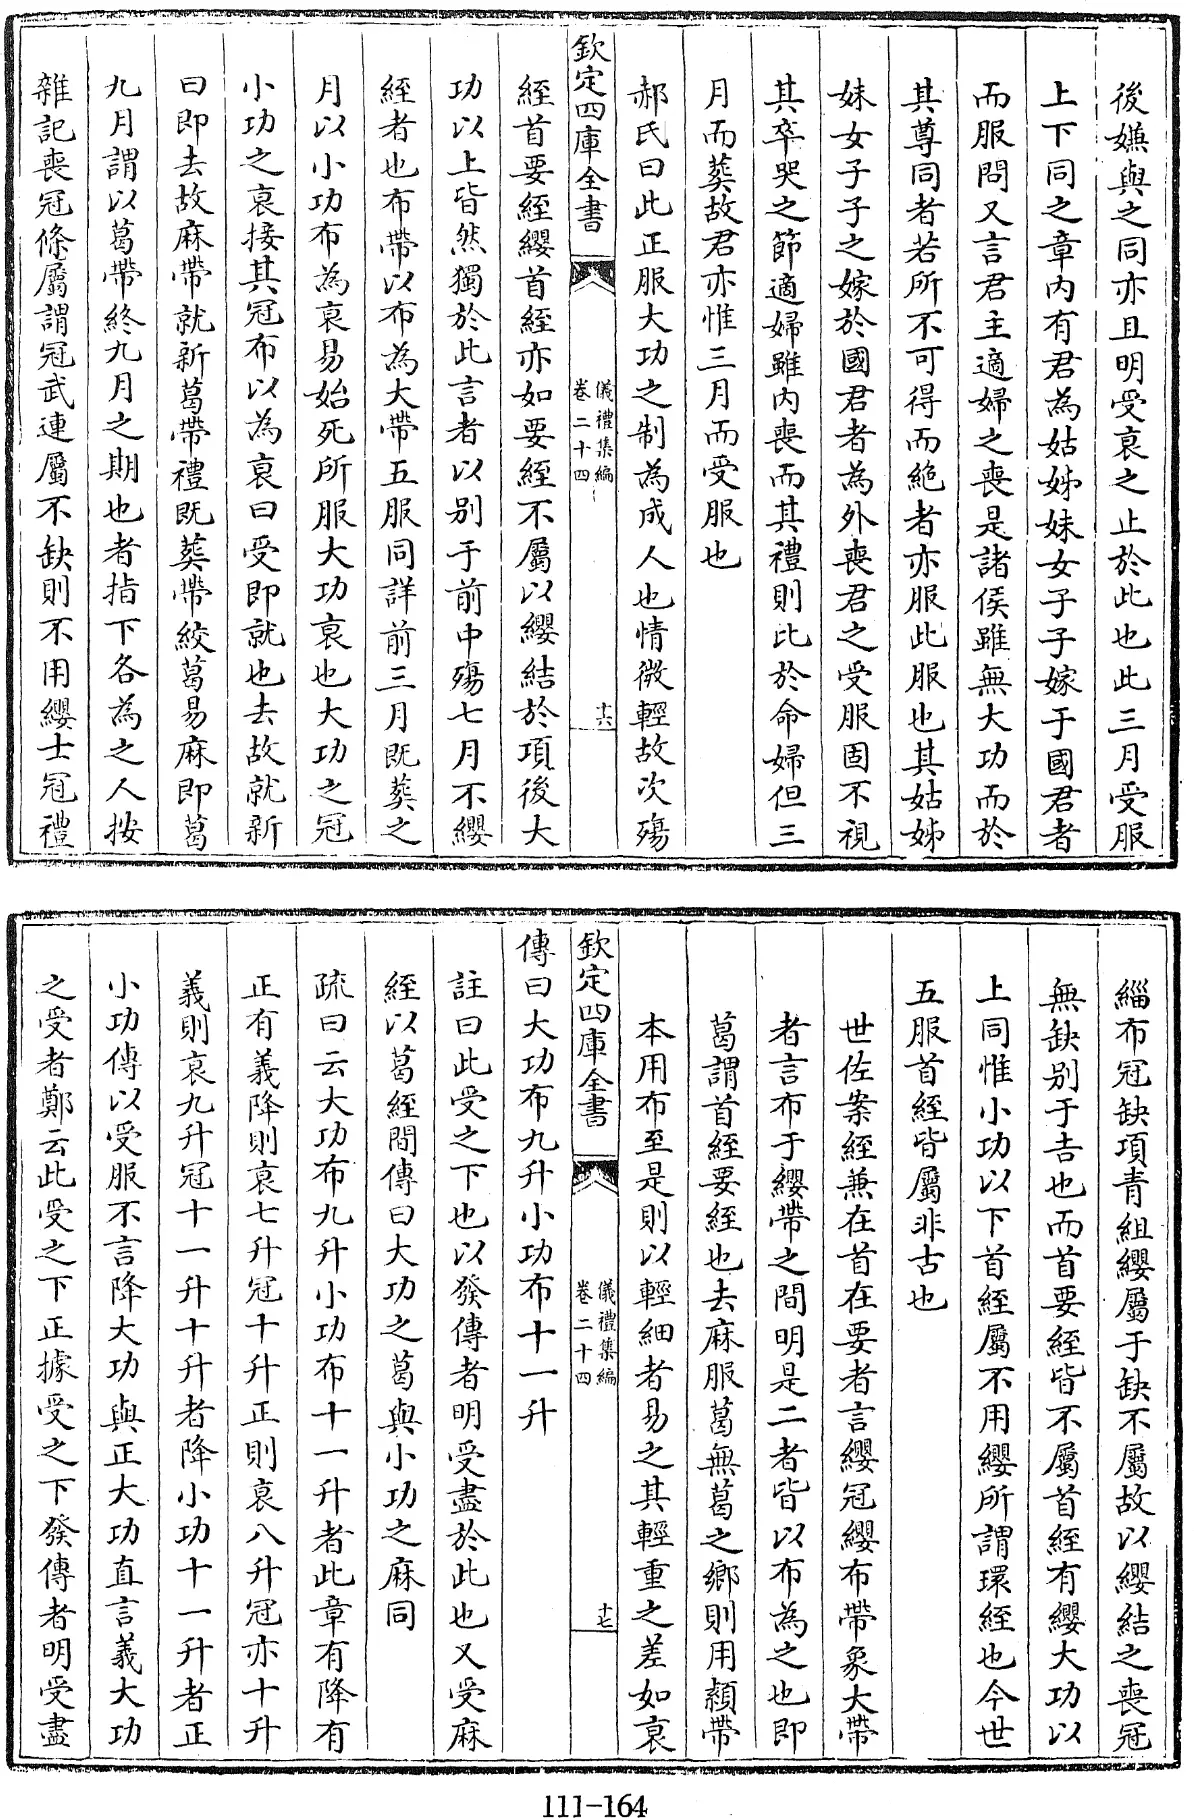 後嫌與之同亦且明受衰之止於此也此三月受服
上下同之章內有君為姑姊妹女子子嫁于國君者
而服問又言君主適婦之喪是諸侯雖無大功而於
其尊同者若所不可得而絶者亦服此服也其姑姊
妹女子子之嫁於國君者為外喪君之受服固不視
其卒哭之節適婦雖內喪而其禮則比於命婦但三
月而葬故君亦惟三月而受服也
郝氏曰此正服大功之制為成人也情微輕故次殤
欽定四庫全書
儀禮集編
卷二十四
十六
絰首要絰纓首絰亦如要絰不屬以纓結於項後大
功以上皆然獨於此言者以别于前中殤七月不纓
絰者也布帶以布為大帶五服同詳前三月既葬之
月以小功布為衰易始死所服大功衰也大功之冠
小功之衰接其冠布以為衰曰受即就也去故就新
曰即去故麻帶就新葛帶禮既葬帶絞葛易麻即葛
九月謂以葛帶終九月之期也者指下各為之人按
雜記喪冠條屬謂冠武連屬不缺則不用纓士冠禮
緇布冠缺項青組纓屬于缺不屬故以纓結之喪冠
無缺别于吉也而首要絰皆不屬首絰有纓大功以
上同惟小功以下首絰屬不用纓所謂環絰也今世
五服首絰皆屬非古也
世佐案絰兼在首在要者言纓冠纓布帶象大帶
者言布于纓帶之間明是二者皆以布為之也即
葛謂首絰要絰也去麻服葛無葛之鄉則用顈帶
本用布至是則以輕細者易之其輕重之差如衰
欽定四庫全書
儀禮集編
卷二十四
十七
傳曰大功布九升小功布十一升
註曰此受之下也以發傳者明受盡於此也又受麻
絰以葛絰間傳曰大功之葛與小功之麻同
疏曰云大功布九升小功布十一升者此章有降有
正有義降則衰七升冠十升正則衰八升冠亦十升
義則衰九升冠十一升十升者降小功十一升者正
小功傳以受服不言降大功與正大功直言義大功
之受者鄭云此受之下正據受之下發傳者明受盡
111-164